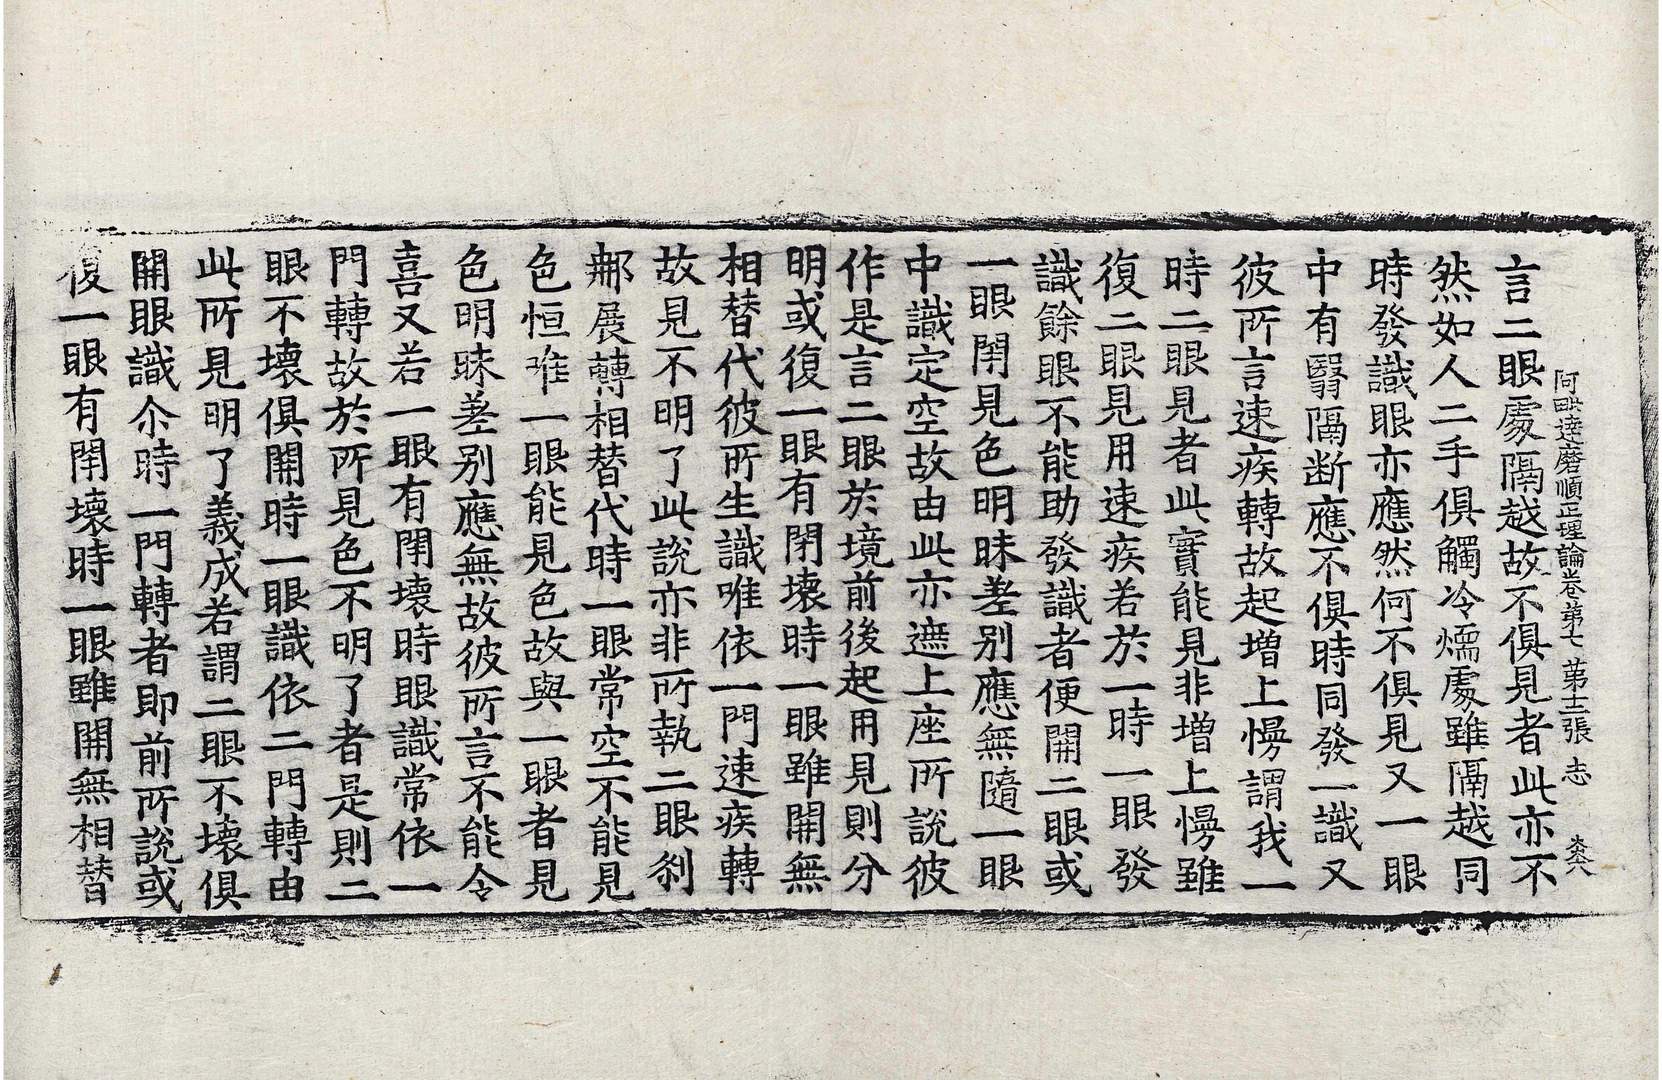 阿毗達磨順正理論卷第七 第十二張 志
言二眼處隔越故不俱見者此亦不
然如人二手俱觸冷煗處雖隔越同
時發識眼亦應然何不俱見又一眼
中有翳隔断應不俱時同發一識又
彼所言速疾轉故起增上慢謂我一
時二眼見者此實能見非增上慢雖
復二眼見用速疾若於一時一眼發
識餘眼不能助發識者便開二眼或
一眼閇見色明昧差别應無隨一眼
中識定空故由此亦遮上座所說彼
作是言二眼於境前後起用見則分
明或復一眼有閇壞時一眼雖開無
相替代彼所生識唯依一門速疾轉
故見不明了此說亦非所執二眼刹
那展轉相替代時一眼常空不能見
色恒唯一眼能見色故與一眼者見
色明昧差别應無故彼所言不能令
喜又若一眼有閇壞時眼識常依一
門轉故於所見色不明了者是則二
眼不壞俱開時一眼識依二門轉由
此所見明了義成若謂二眼不壞俱
開眼識尒時一門轉者即前所說或
復一眼有閇壞時一眼雖開無相替